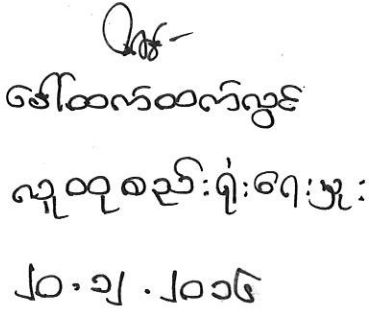 ဒေါ်ထက်ထက်လွင်
လူထုစည်းရုံးရေးမှူး
၂၀.၁၂.၂၀၁၆